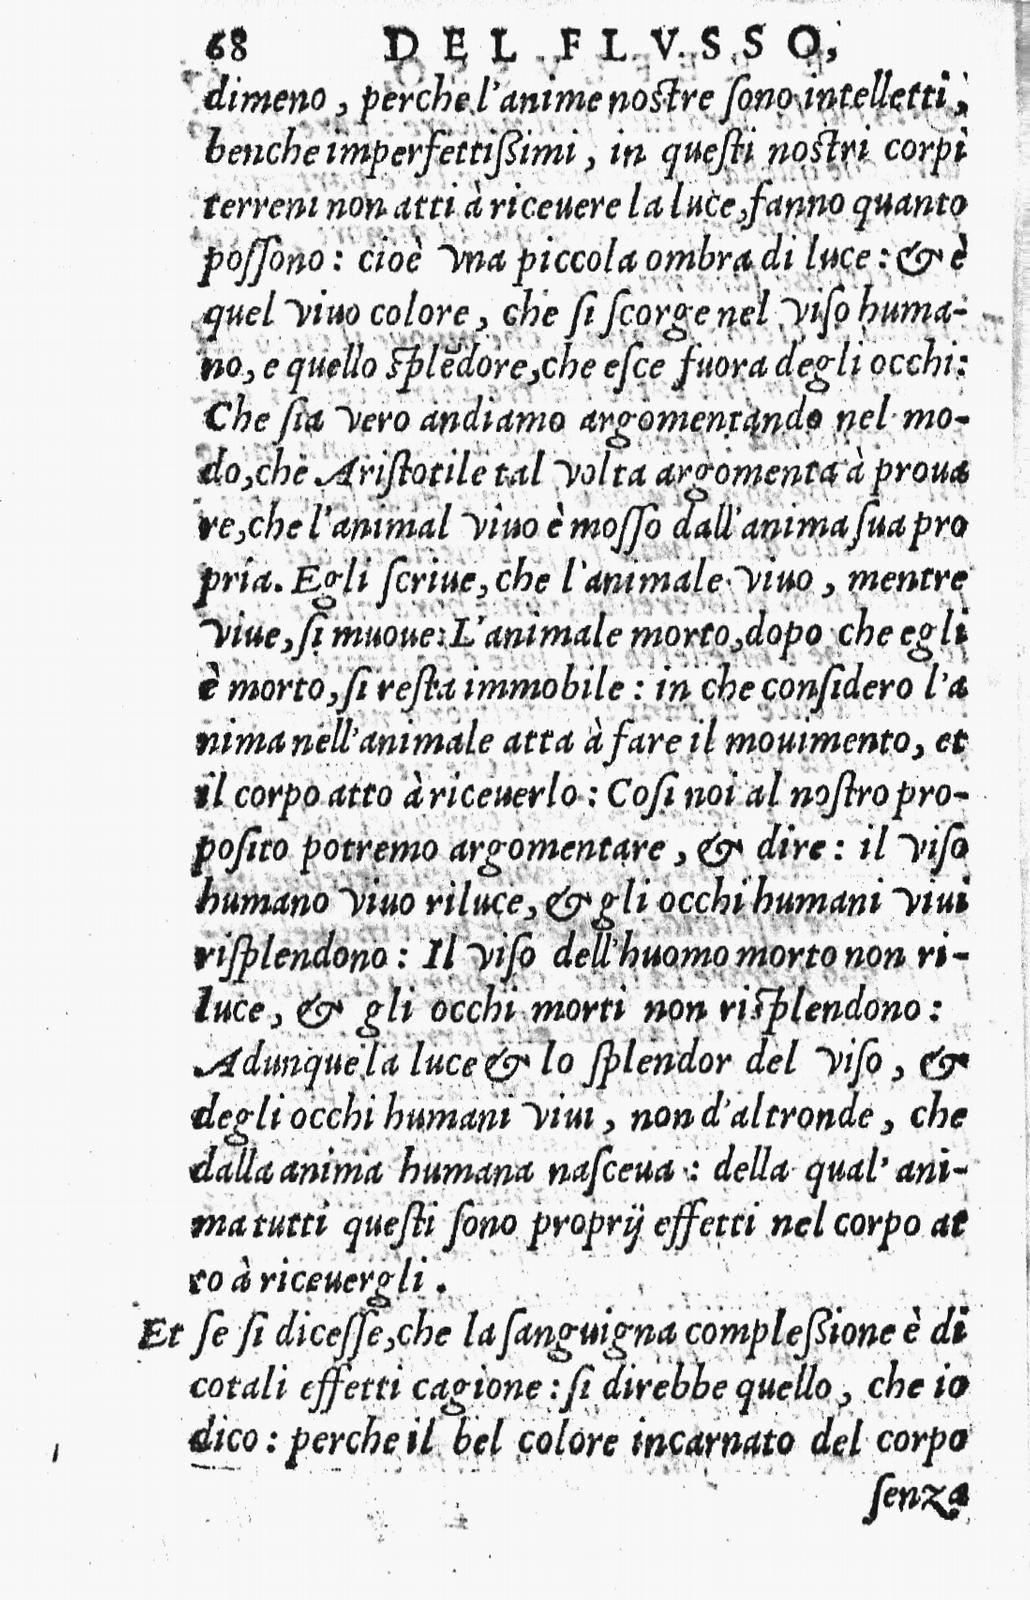 68 DEL FLVSSO,
dimeno, perche l'anime nostre ſono intelletti,
benche imperfettißimi, in queſti nostri corpi
terreni non atti à riceuere la luce, fanno quanto
poſſono: cioè vna piccola ombra di luce: & è
quel viuo colore, che ſi ſcorge nel viſo huma-
no, e quello ſplēdore, che eſce fuora degli occhi:
Che ſia vero andiamo argomentando nel mo-
do, che Ariſtotile tal volta argomenta à proua
re, che l'animal viuo è moſſo dall'anima ſua pro
pria. Egli ſcriue, che l'animale viuo, mentre
viue, ſi muoue: L'animale morto, dopo che egli
è morto, ſi reſta immobile: in che conſidero l'a
nima nell'animale atta à fare il mouimento, et
il corpo atto à riceuerlo: Coſi noi al noſtro pro-
poſito potremo argomentare, & dire: il viſo
humano viuo riluce, & gli occhi humani viui
riſplendono: Il viſo dell'huomo morto non ri-
luce, & gli occhi morti non risplendono:
Adunque la luce & lo ſplendor del viſo, &
degli occhi humani viui, non d'altronde, che
dalla anima humana naſceua: della qual' ani-
ma tutti queſti ſono proprij effetti nel corpo at
to à riceuergli.
Et ſe ſi diceſſe, che la ſanguigna compleßione è di
cotali effetti cagione: ſi direbbe quello, che io
dico: perche il bel colore incarnato del corpo
ſenza